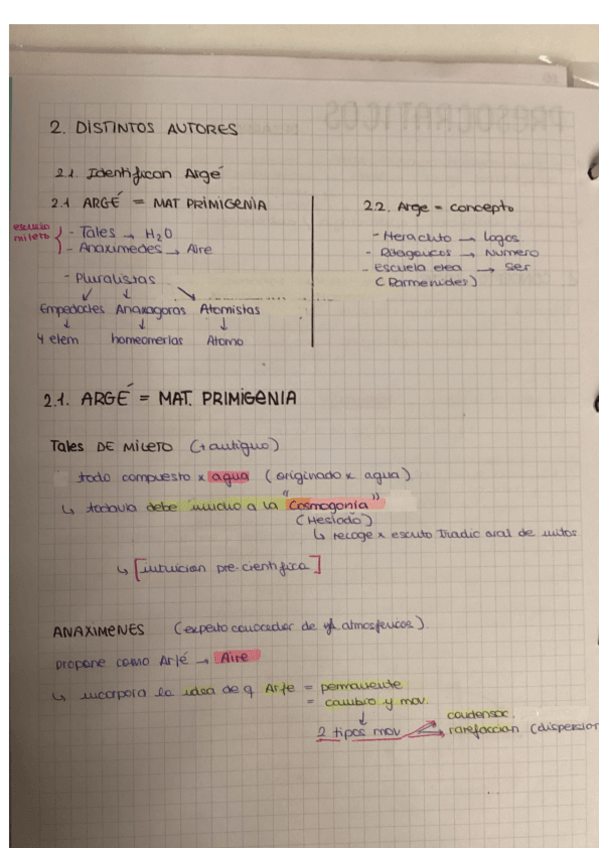 PRESOCRATICOS
2. DISTINTOS AUTORES
2.1. Identifican Argé
2.1 ARGÉ = MAT PRIMIGENIA
escuela mileto
- Tales → H2O
- Anaximedes → Aire
- Pluralistas
Empedocles Anaxagoras Atomistas
4 elem homeomerias Atomo
2.2. Arge = concepto
- Heraclito → logos
- Pitagoricos → Numero
- escuela elea → ser
(Parmenides)
2.1. ARGÉ = MAT. PRIMIGENIA
Tales DE MILETO (+ antiguo)
todo compuesto x agua (originado x agua)
↳ todavia debe mucho a la "Cosmogonía"
(Hesiodo)
↳ recoge x escrito Tradic oral de mitos
↳ [intuicion pre-cientifica]
ANAXIMENES (experto conocedor de atmosfericos).
propone como Arjé → Aire
↳ incorpora la idea de q Arje = permanente
= cambio y mov.
↓
2 tipos mov
condensac.
rarefaccion (dispersion